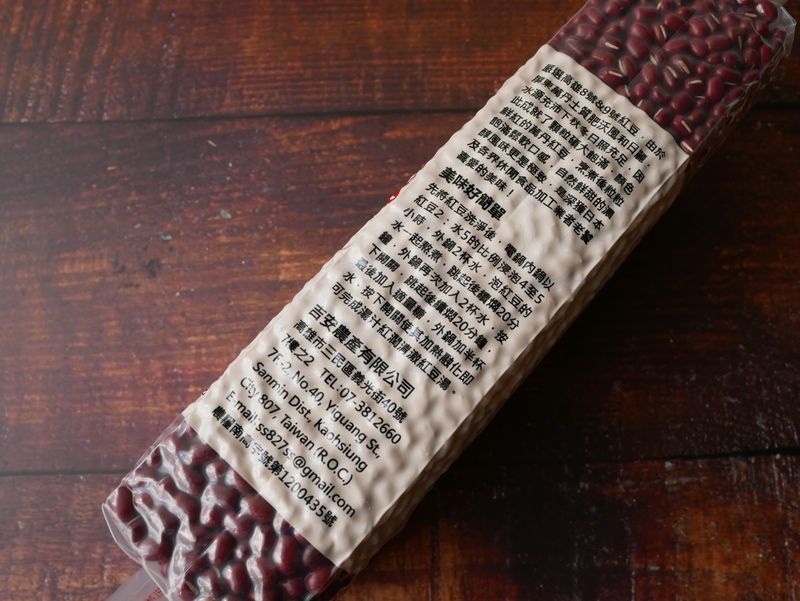 嚴選高雄8號&9號紅豆，由於
屏東萬丹土質肥沃風和日麗，
水源充沛下秋冬日照充足，因
此成就了顆粒碩大飽滿、顏色
鮮紅的萬丹紅豆，烹煮後粒粒
飽滿鬆軟口感，自然鮮甜的濃
醇風味更是極致，最深獲日本
及各界休閒食品加工業者老饕
喜愛的美味！
美味好簡單
先將紅豆洗淨後，電鍋內鍋以
紅豆2：水5的比例浸泡4至5
小時，外鍋2杯水，泡紅豆的
水一起熬煮，跳起後續燜20分
鐘，外鍋再次加入2杯水，按
下開關，跳起後續燜20分鐘，
最後加入適量糖，外鍋加半杯
水，按下開關使其加熱融化即
可完成湯汁紅潤濃濃紅豆湯。
吉安農產有限公司
高雄市三民區義光街40號
7樓之2 TEL:07-3812660
7F-2, No.40, Yiguang St.,
Sanmin Dist., Kaohsiung
City 807, Taiwan (R.O.C.)
E-mail:ss827ss@gmail.com
糧種南高字號第1200435號